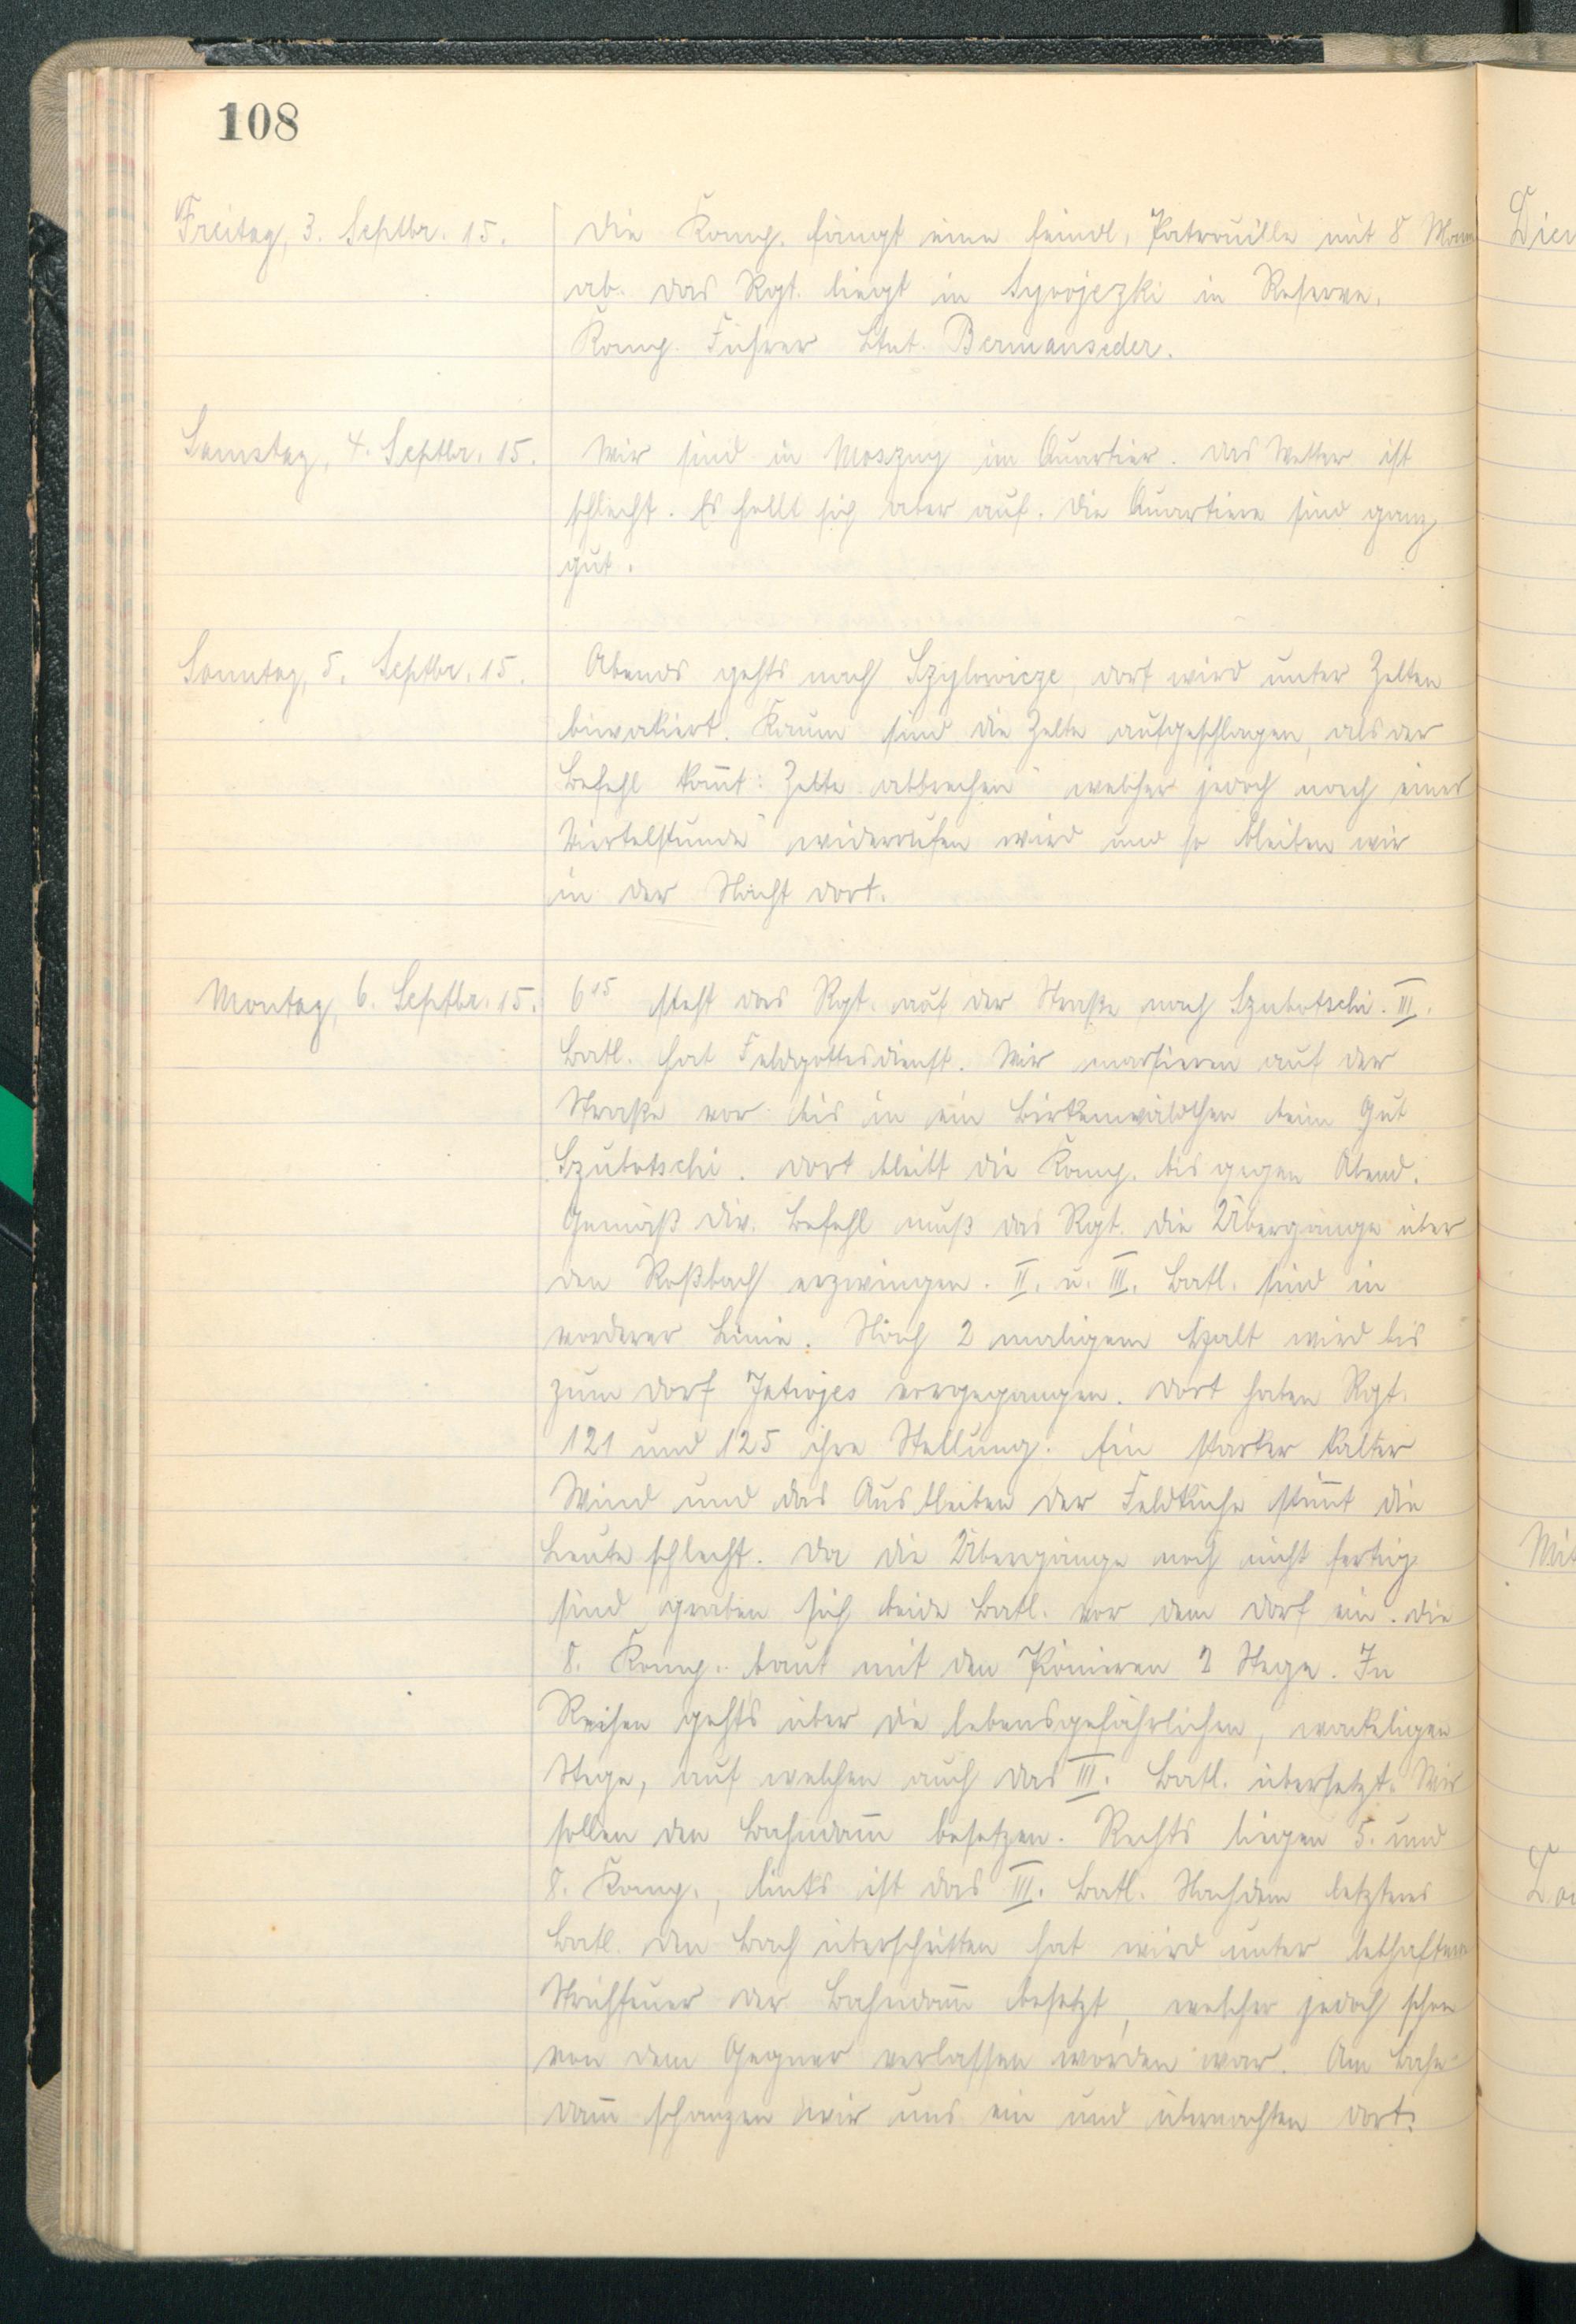 108
Freitag, 3. Septbr. 15. Die Komp. fängt eine feindl. Patrouille mit 8 Mann
ab. Das Rgt. liegt in Syrojezki in Reserve.
Komp. Führer Ltnt. Bermanseder.
Samstag, 4. Septbr. 15. Wir sind in Moszny im Quartier. Das Wetter ist
schlecht. Es hellt sich aber auf. Die Quartiere sind ganz
gut.
Sonntag, 5. Septbr. 15. Abends gehts nach Szylowicze, dort wird unter Zelten
biwakiert. Kaum sind die Zelte aufgeschlagen, als der
Befehl kom̄t: Zelte abbrechen" welcher jedoch nach einer
Viertelstunde widerrufen wird und so bleiben wir
in der Nacht dort.
Montag, 6. Septbr. 15. 6 15 steht das Rgt. auf der Straße nach Szubotschi. III.
Batl. hat Feldgottesdienst. Wir marschieren auf der
Straße vor bis in ein Birkenwäldchen beim Gut
Szubotschi. Dort bleibt die Komp. bis gegen Abend.
Gemäß Div. Befehl muß das Rgt. die Übergänge über
den Roßbach erzwingen. II. u. III. Batl. sind in
vorderer Linie. Nach 2 maligem Halt wird bis
zum Dorf Jatwjes vorgegangen. Dort haben Rgt.
121 und 125 ihre Stellung. Ein starker kalter
Wind und das Ausbleiben der Feldküche stim̄t die
Leute schlecht. Da die Übergänge noch nicht fertig
sind graben sich beide Batl. vor dem Dorf ein. Die
8. Komp. baut mit den Pionieren 2 Stege. In
Reihen gehts über die lebensgefährlichen, wackeligen
Stege, auf welchen auch das III. Batl. übersetzt. Wir
sollen den Bahndam̄ besetzen. Rechts liegen 5. und
8. Komp., links ist das III. Batl. Nachdem letzteres
Batl. den Bach überschritten hat wird unter lebhaftem
Streufeuer der Bahndam̄ besetzt, welcher jedoch schon
von dem Gegner verlassen worden war. Am Bahn-
dam̄ schanzen wir uns ein und übernachten dort.